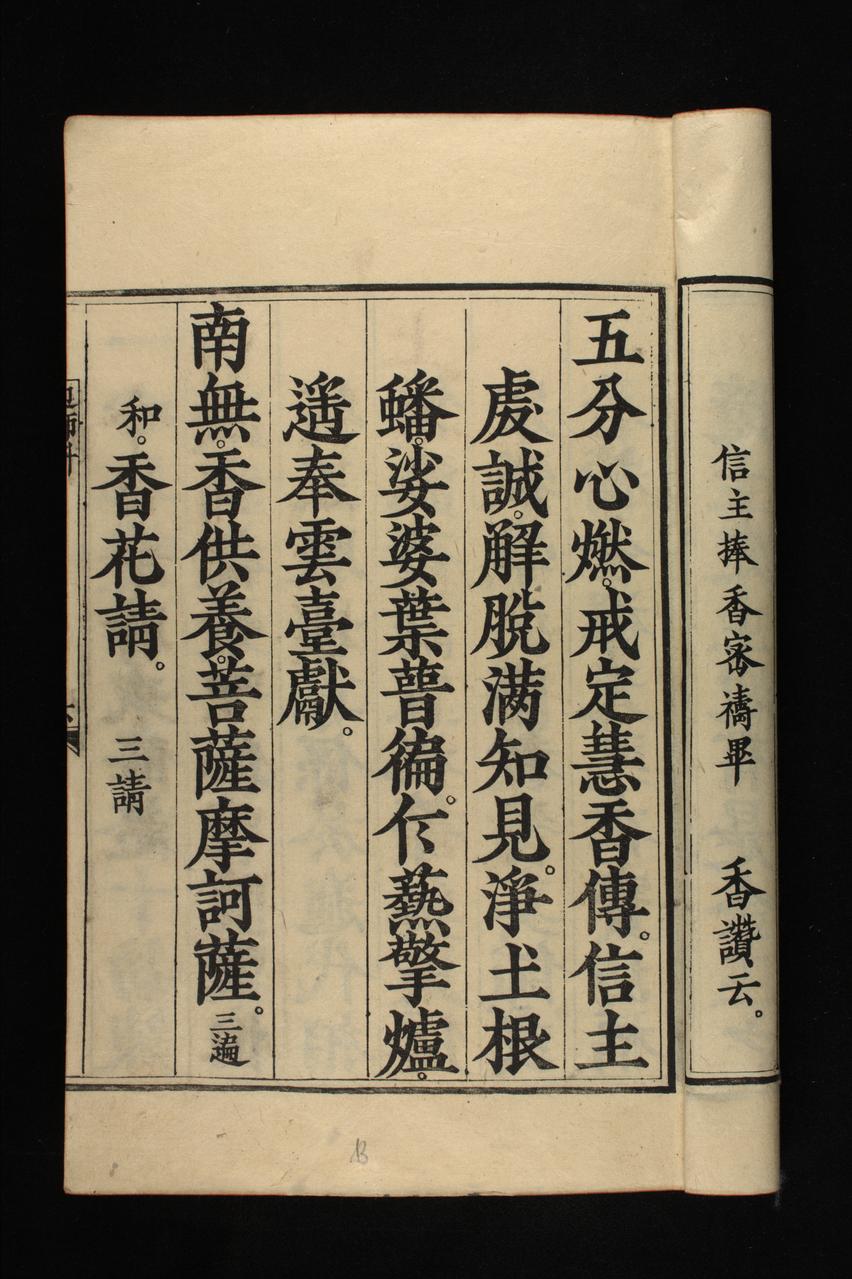 信主捧香審禱畢 香讚云。
五分心燃。戒定慧香傳。信主
䖍誠。解脫满知見。淨土根
蟠。娑婆葉普徧。仗爇擎爐。
遥奉雲臺獻。
南無。香供養。菩薩摩訶薩。三遍
和。香花請。三請